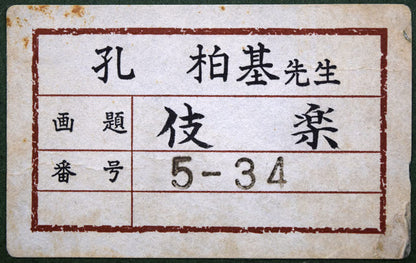 孔 柏基先生
画題 伎楽
番号 5-34